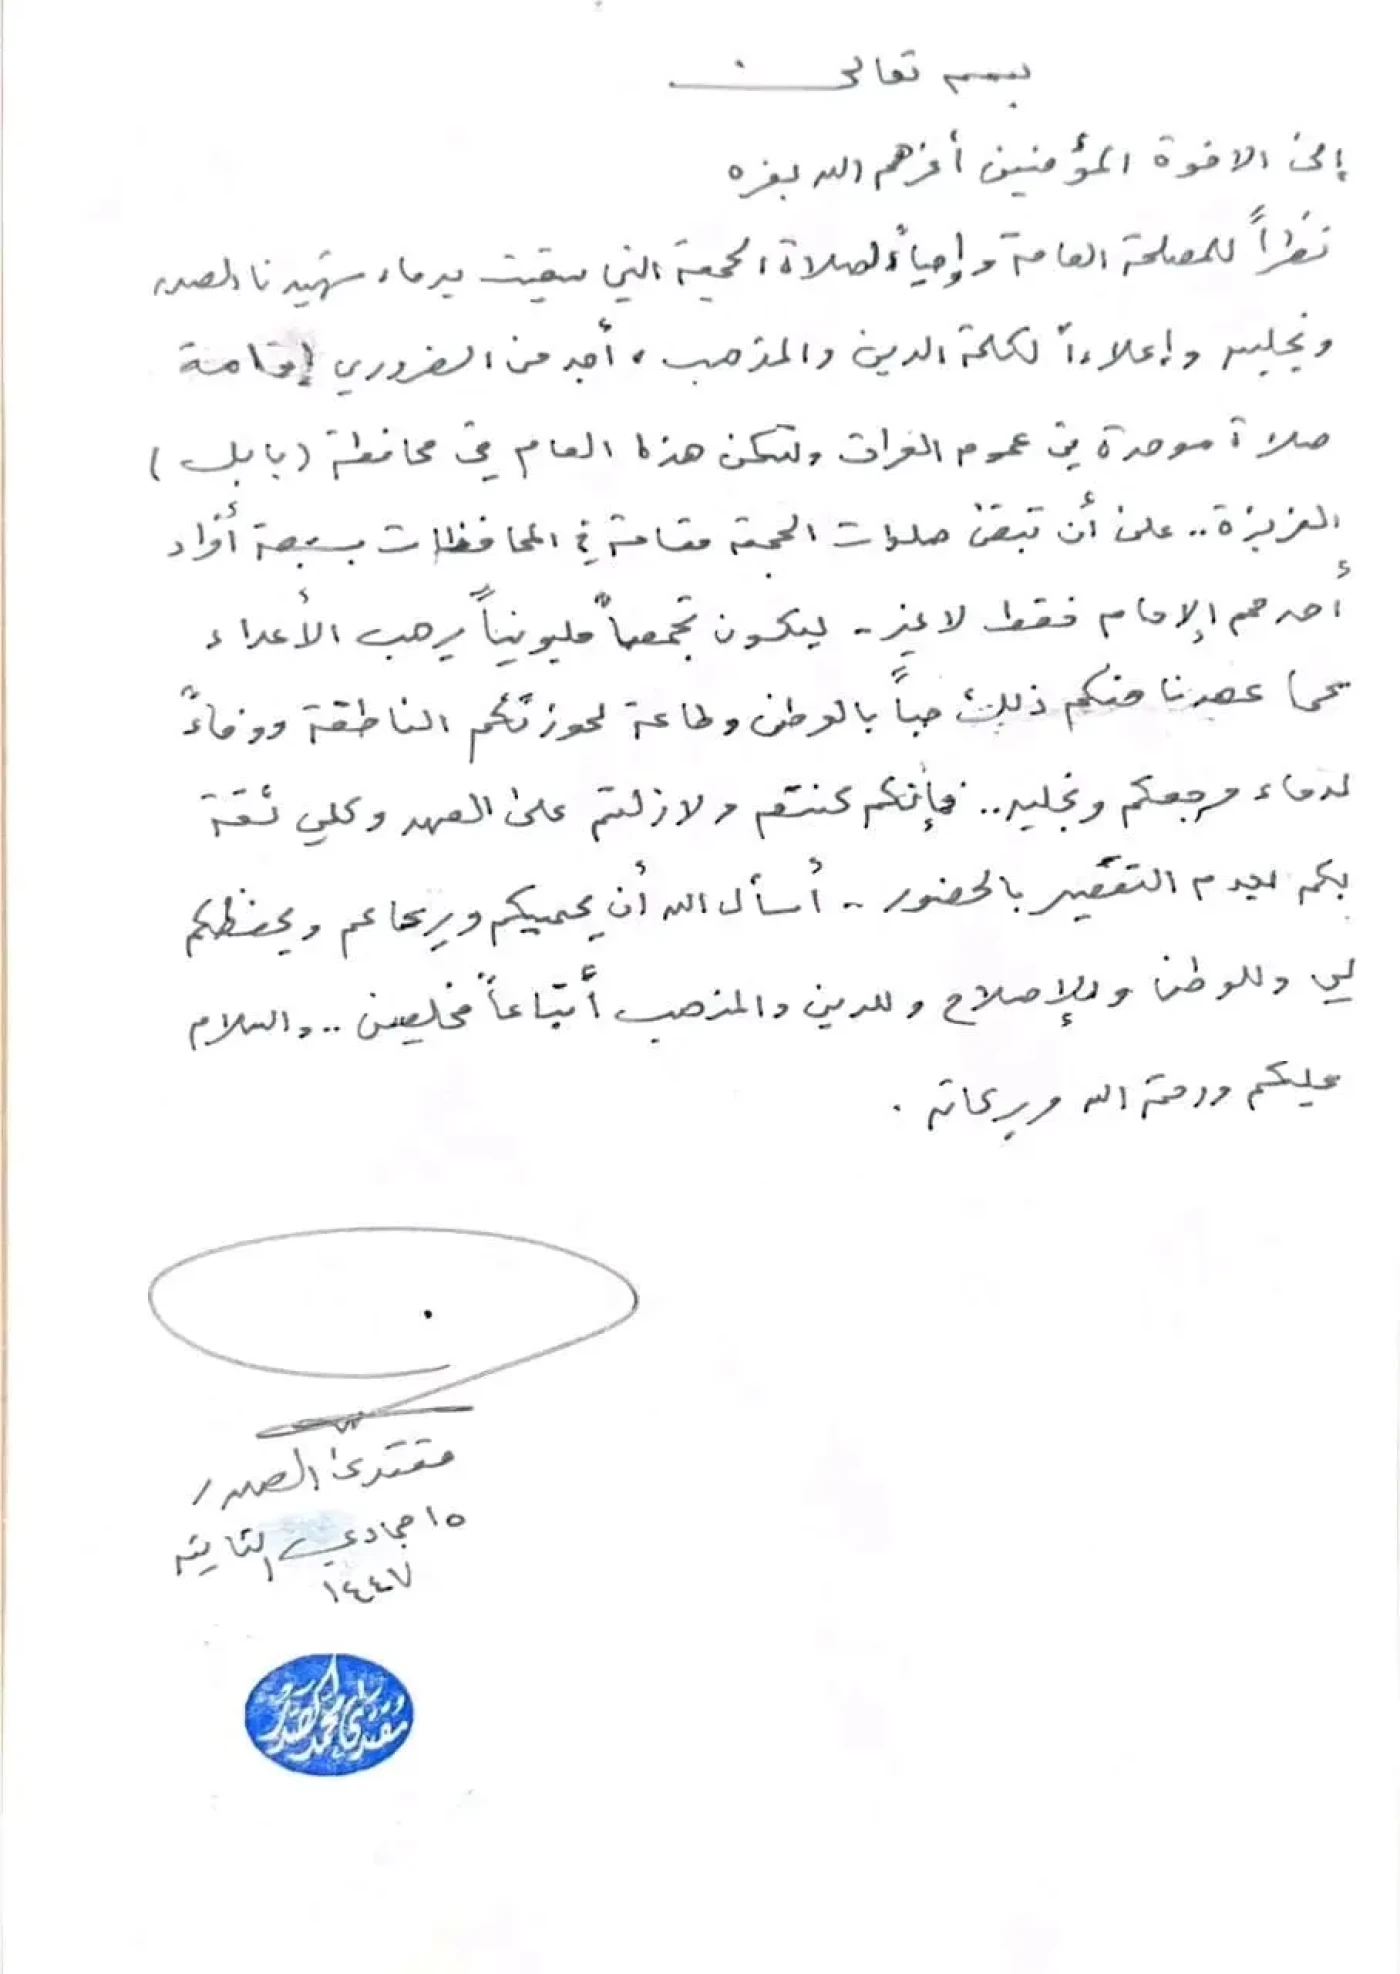 بسمه تعالى
إلى الاخوة المؤمنين أعزهم الله بعزه
نظراً للمصلحة العامة وإحياءً لصلاة الجمعة التي سقيت بدماء شهيدنا الصدر
ونجليه وإعلاءاً لكلمة الدين والمذهب، أجد من الضروري إقامة
صلاة موحدة في عموم الفرات ولتكن هذا العام في محافظة (بابل)
العزيزة.. على أن تبقى صلوات الجمعة مقامة في المحافظات بسبعة أفراد
أحدهم الإمام فقط لا غير.. ليكون تجمعاً مليونياً يرهب الأعداء
كما عهدنا منكم ذلك حباً بالوطن وطاعة لحوزتكم الناطقة ووفاءً
لدماء مرجعكم ونجليه.. فإنكم كنتم ولازلتم على العهد وكلي ثقة
بكم لعدم التقصير بالحضور.. أسأل الله أن يحميكم ويرعاكم ويحفظكم
لي وللوطن وللإصلاح وللدين والمذهب أتباعاً مخلصين.. والسلام
عليكم ورحمة الله وبركاته.
مقتدى الصدر
١٥ جمادي الثانية
١٤٤٧
مقتدى محمد الصدر